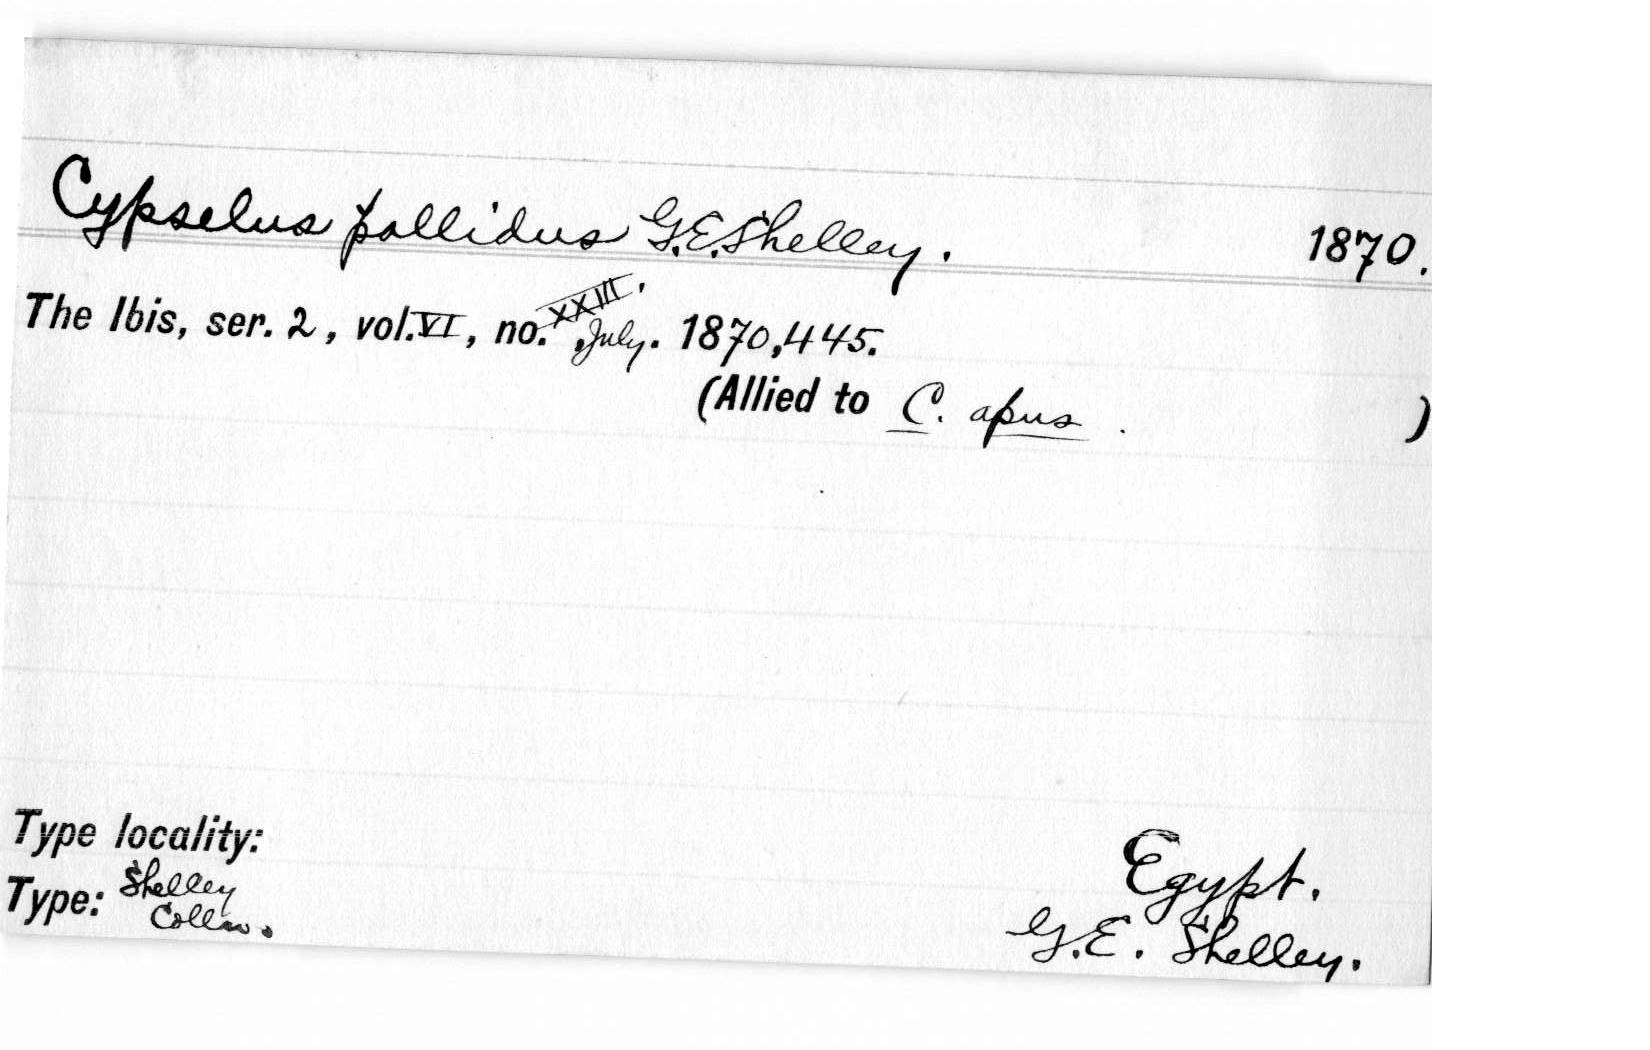 Cypselus pallidus G.E.Shelley. 1870.
The Ibis, ser. 2, vol.VI, no. XXIII. July. 1870,445.
(Allied to C. apus. )
Type locality: Egypt.
Type: Shelley Colln. G.E. Shelley.